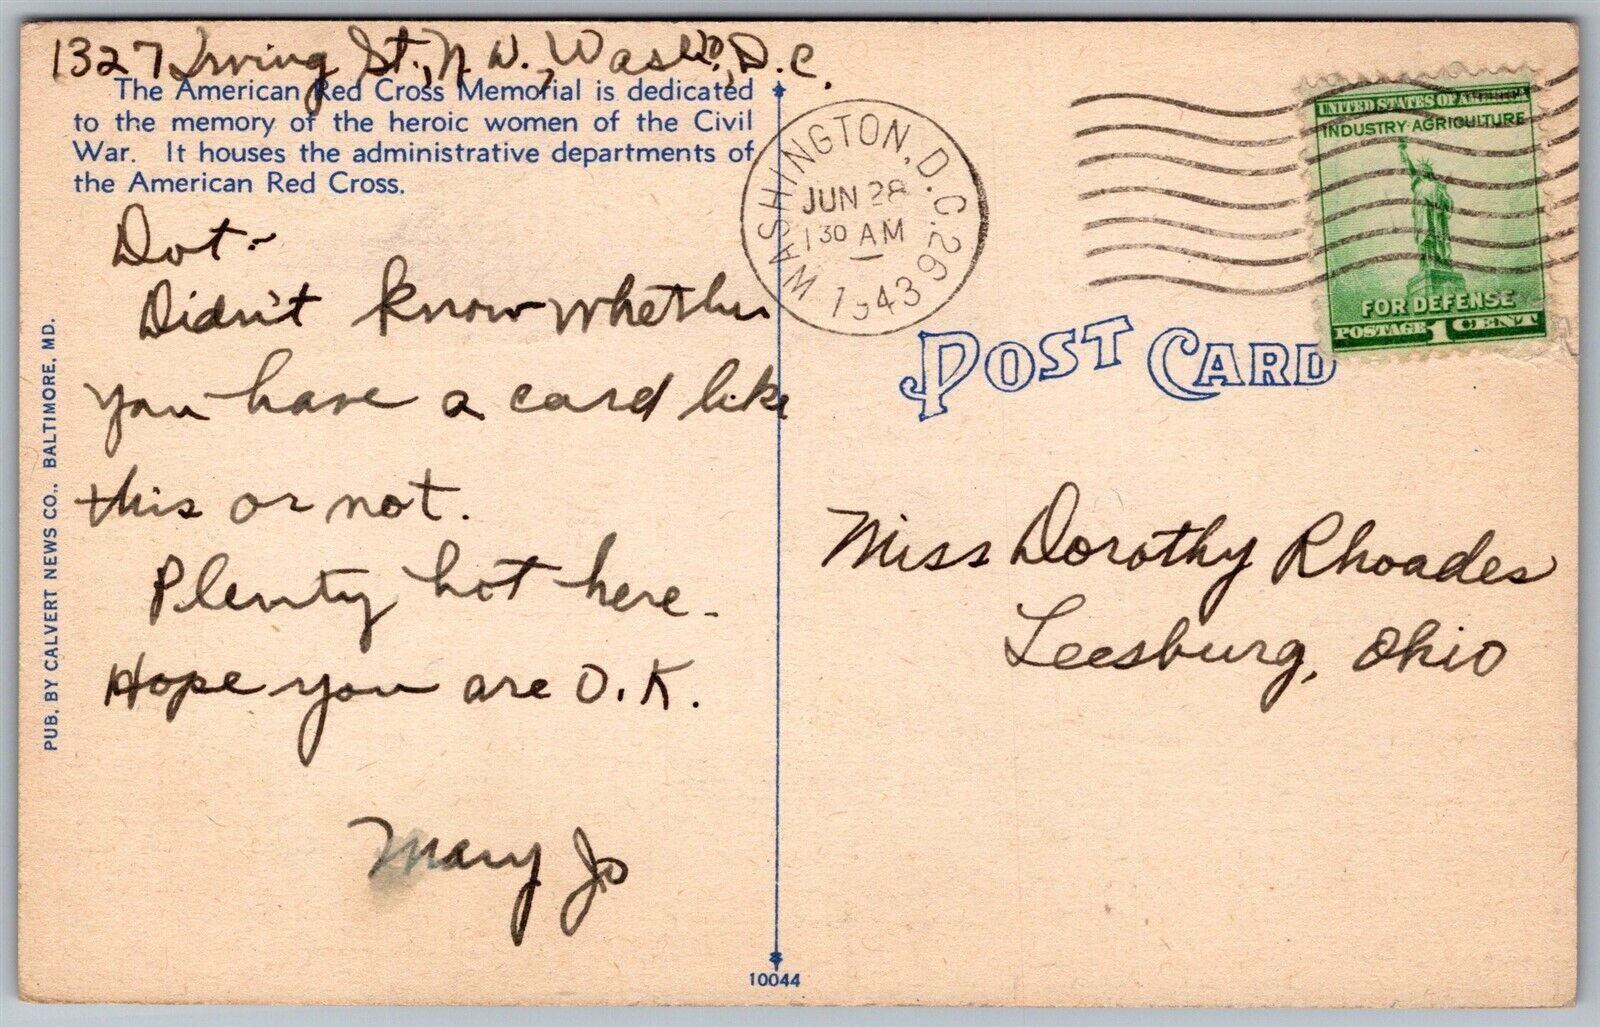 1327 Irving St., N.W., Wash., D.C.
The American Red Cross Memorial is dedicated
to the memory of the heroic women of the Civil
War. It houses the administrative departments of
the American Red Cross.
Dot:-
Didn't know whether
you have a card like
this or not.
Plenty hot here.
Hope you are O.K.
Mary Jo
PUB. BY CALVERT NEWS CO., BALTIMORE, MD.
10044
WASHINGTON, D.C. 26
JUN 28
1 30 AM
1943
UNITED STATES OF AMERICA
INDUSTRY·AGRICULTURE
FOR DEFENSE
POSTAGE 1 CENT
POST CARD
Miss Dorothy Rhoades
Leesburg, Ohio